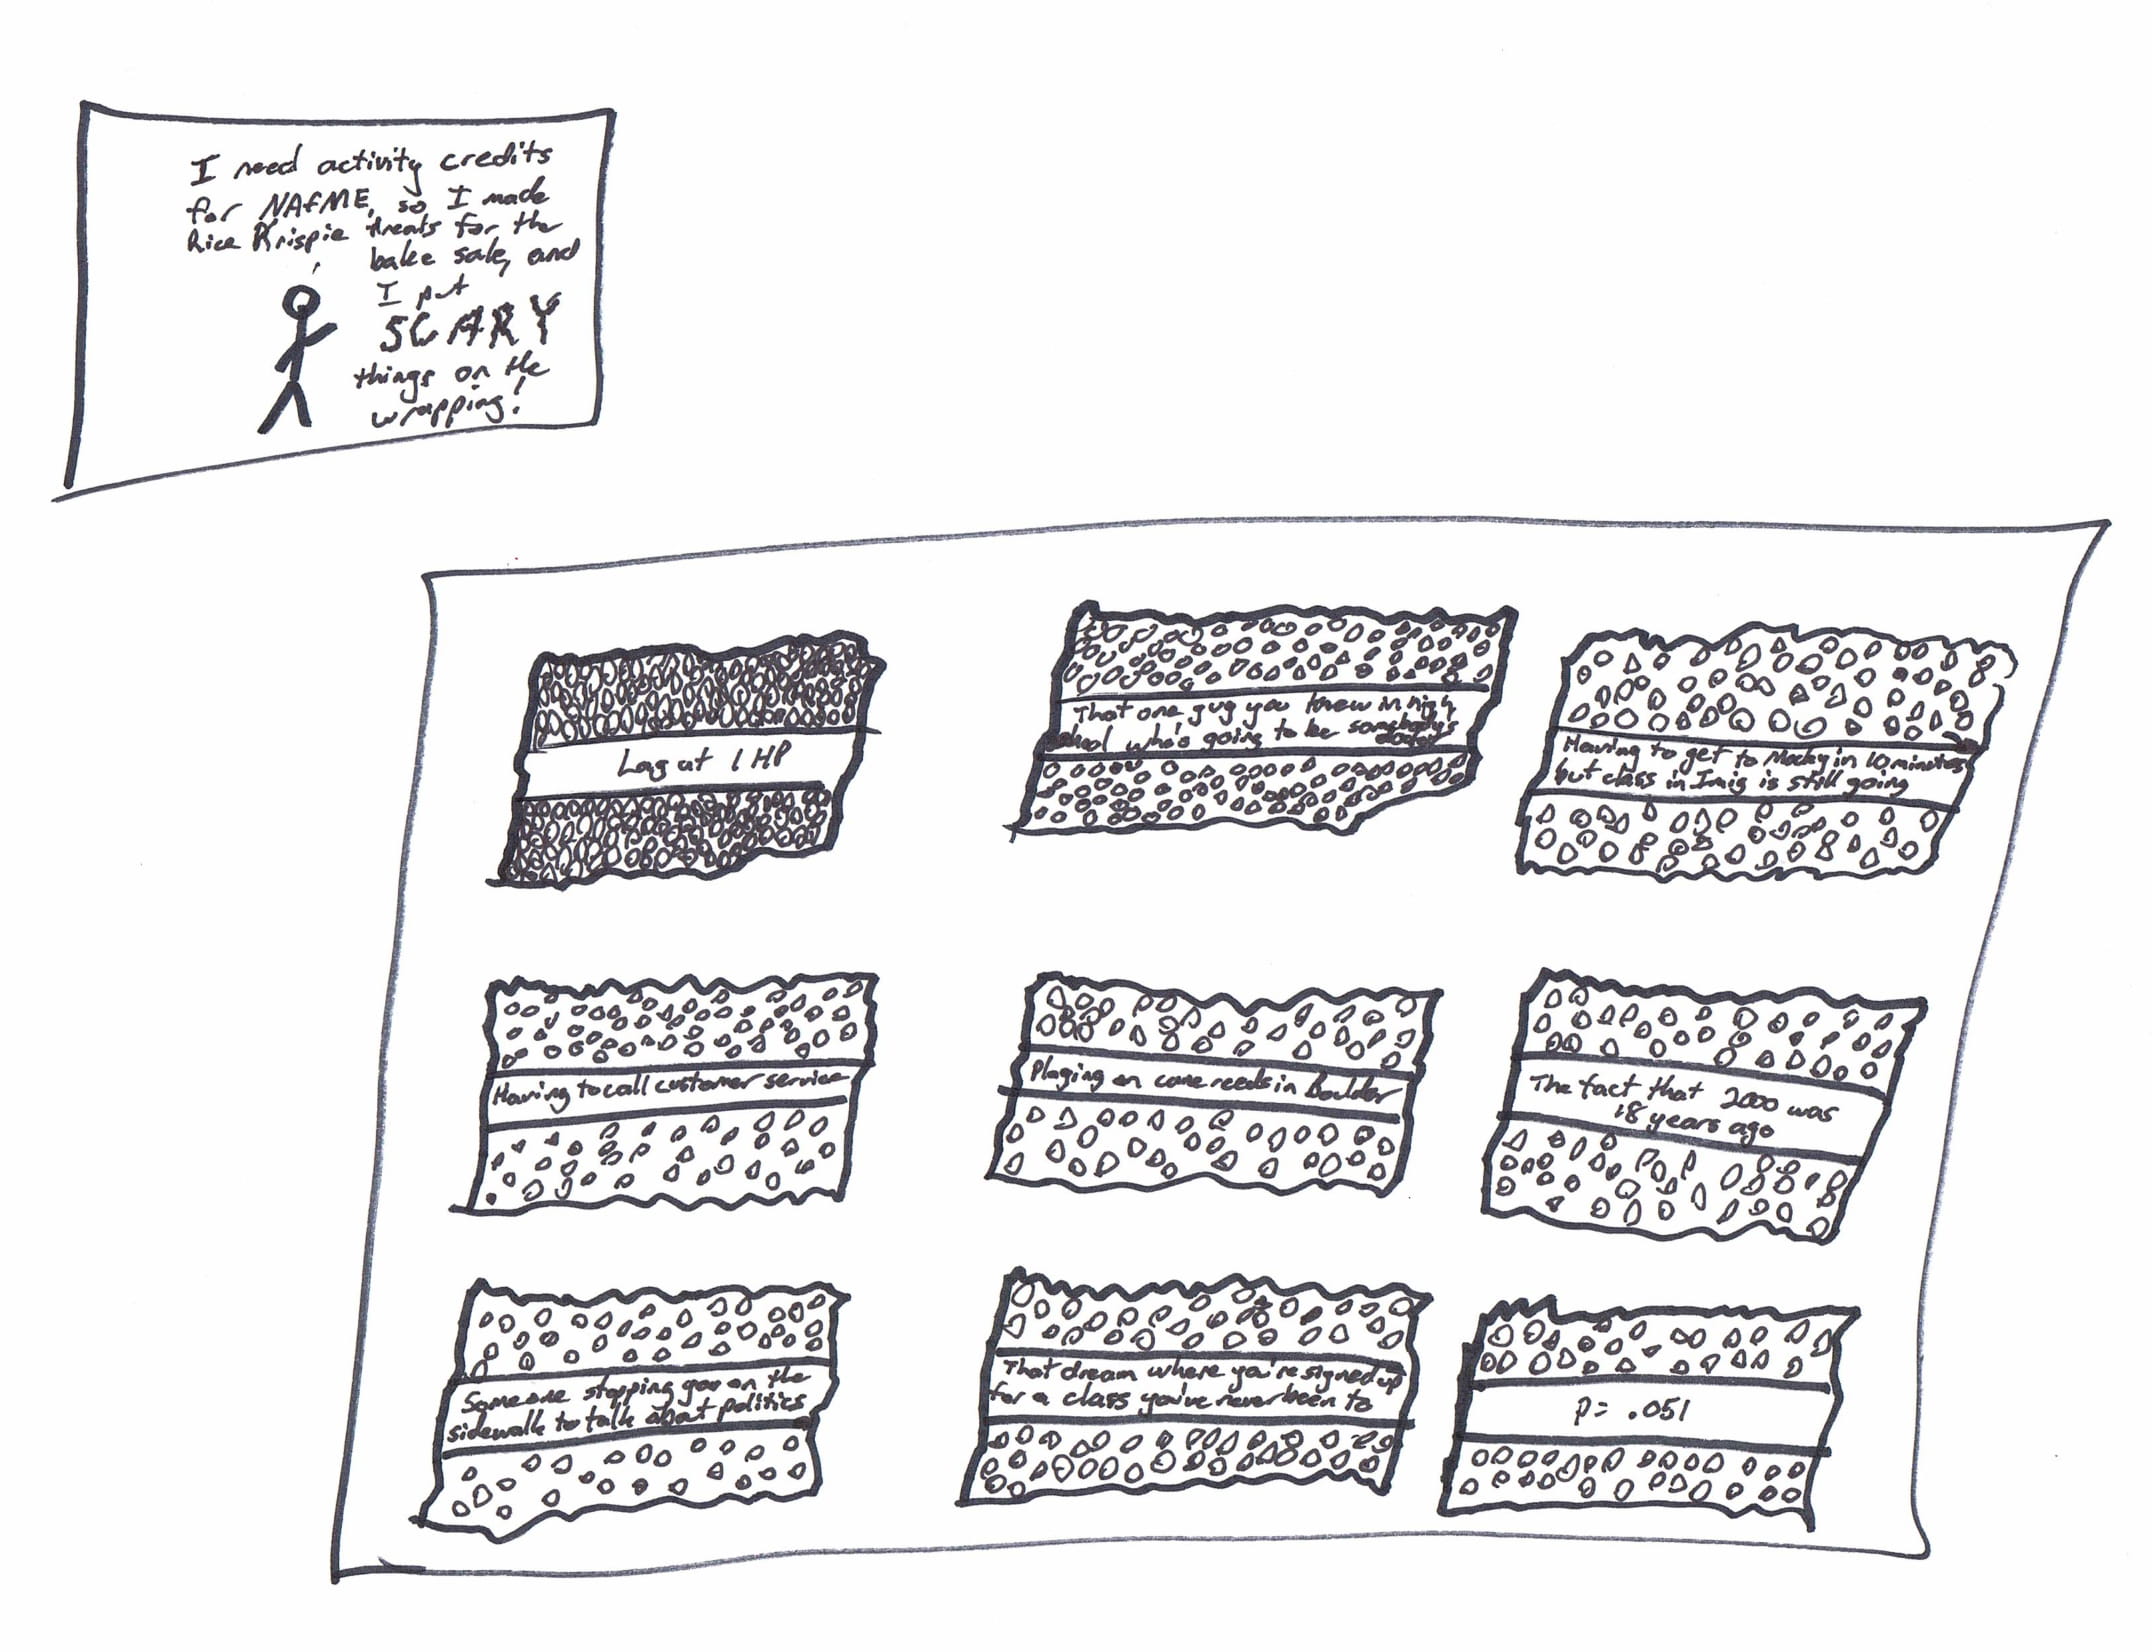 I need activity credits
for NAfME, so I made
Rice Krispie treats for the
bake sale, and
I put
SCARY
things on the
wrapping!
Lag at 1 HP
That one guy you knew in high
school who's going to be somebody's
doctor
Having to get to Macky in 10 minutes
but class in Imig is still going
Having to call customer service
Playing on cane reeds in Boulder
The fact that 2000 was
18 years ago
Someone stopping you on the
sidewalk to talk about politics
That dream where you're signed up
for a class you've never been to
p = .051